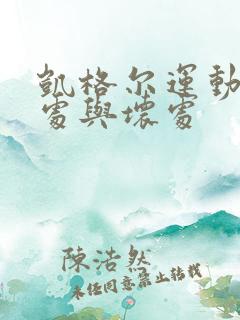 凱格尔運動
處與壞處
陳浩然
未经同意禁止转载